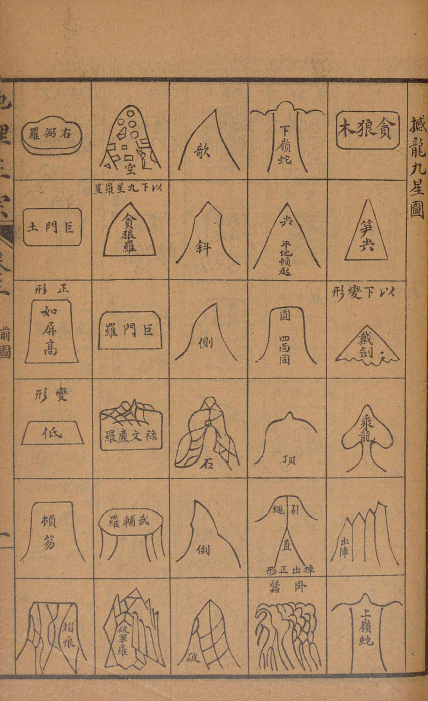 撼龍九星圖
貪狼木
笋尖
以下變形
戴劍
乘龍
出陣
上嶺蛇
下嶺蛇
尖 平地傾起
圓 四面同
頂
引繩
直
掉出正形
卧蠶
歌
斜
側
石
倒
破
空
以下九星羅星
貪狼羅
巨門羅
祿文廉羅
武輔羅
破軍羅
右弼羅
巨門土
正形
如屏高
變形
低
頓笏
摺痕
卷三
前圖
一